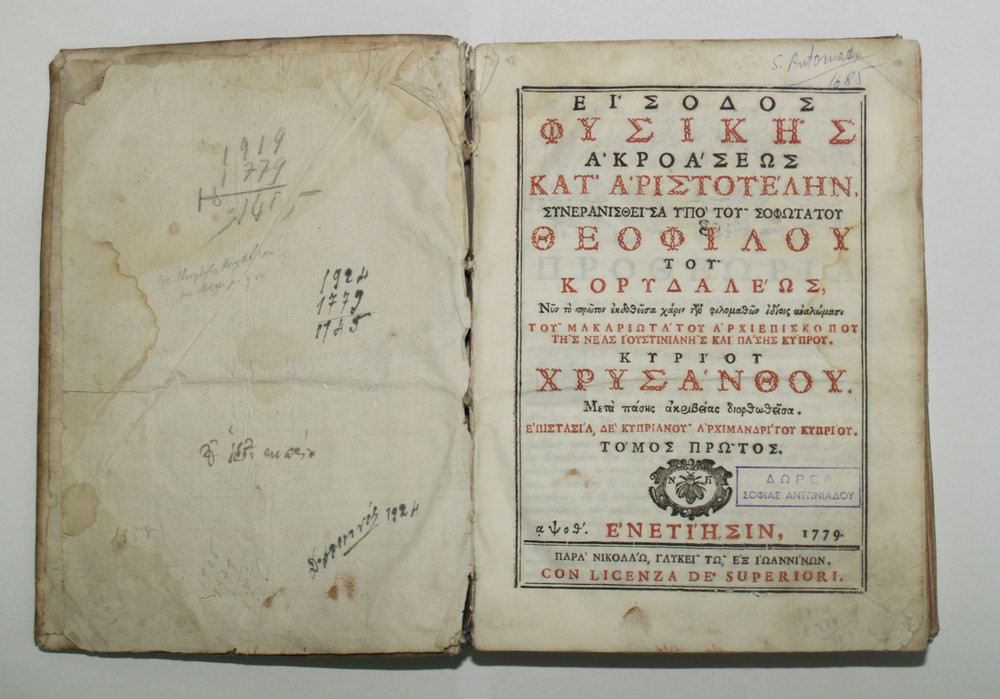 1919
1779
1924
1779
1745
1924
S. Antoniad
1685
ΕΙ᾿ΣΟΔΟΣ
ΦΥΣΙΚΗ͂Σ
Α᾿ΚΡΟΑ´ΣΕΩΣ
ΚΑΤ᾿ Α᾿ΡΙΣΤΟΤΕ´ΛΗΝ,
ΣΥΝΕΡΑΝΙΣΘΕΙ͂ΣΑ ΥΠΟ` ΤΟΥ͂ ΣΟΦΩΤΑ´ΤΟΥ
ΘΕΟΦΙ´ΛΟΥ
ΤΟΥ͂
ΚΟΡΥΔΑΛΕ´ΩΣ,
Νῦν τὸ πρῶτον ἐκδοθεῖσα χάριν τῶν φιλομαθῶν ἰδίοις ἀναλώμασι
ΤΟΥ͂ ΜΑΚΑΡΙΩΤΑ´ΤΟΥ Α᾿ΡΧΙΕΠΙΣΚΟ´ΠΟΥ
ΤΗ͂Σ ΝΕ´ΑΣ Ι᾿ΟΥΣΤΙΝΙΑΝΗ͂Σ ΚΑΙ` ΠΑ´ΣΗΣ ΚΥ´ΠΡΟΥ.
ΚΥΡΙ´ΟΥ
ΧΡΥΣΑ´ΝΘΟΥ.
Μετὰ πάσης ἀκριβείας διορθωθεῖσα.
Ε᾿ΠΙΣΤΑΣΙ´Α, ΔΕ` ΚΥΠΡΙΑΝΟΥ͂ Α᾿ΡΧΙΜΑΝΔΡΙ´ΤΟΥ ΚΥΠΡΙ´ΟΥ.
ΤΟ´ΜΟΣ ΠΡΩ͂ΤΟΣ.
Ν Γ
ΔΩΡΕΑ
ΣΟΦΙΑΣ ΑΝΤΩΝΙΑΔΟΥ
αψοθ´. Ε᾿ΝΕΤΙ´ΗΣΙΝ, 1779.
ΠΑΡΑ` ΝΙΚΟΛΑ´Ω, ΓΛΥΚΕΙ͂ ΤΩ͂, Ε᾿Ξ Ι᾿ΩΑΝΝΙ´ΝΩΝ.
CON LICENZA DE' SUPERIORI.